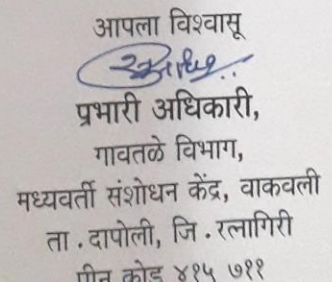 आपला विश्वासू
प्रभारी अधिकारी,
गावतळे विभाग,
मध्यवर्ती संशोधन केंद्र, वाकवली
ता . दापोली, जि . रत्नागिरी
पीन कोड ४१५ ७११